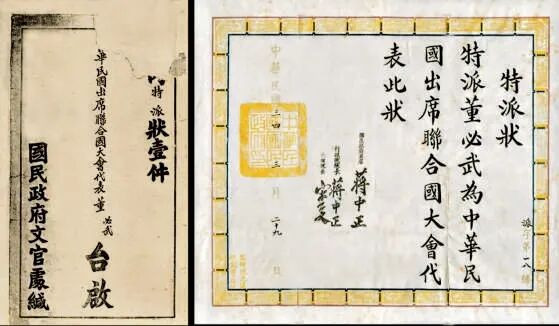 特派狀壹件
華民國出席聯合國大會代表董必武 台啟
國民政府文官處緘
派字第一八號
特派狀
特派董必武為中華民
國出席聯合國大會代
表此狀
國民政府主席 蔣中正
行政院院長 蔣中正
宋子文
中華民國三四三月二十九